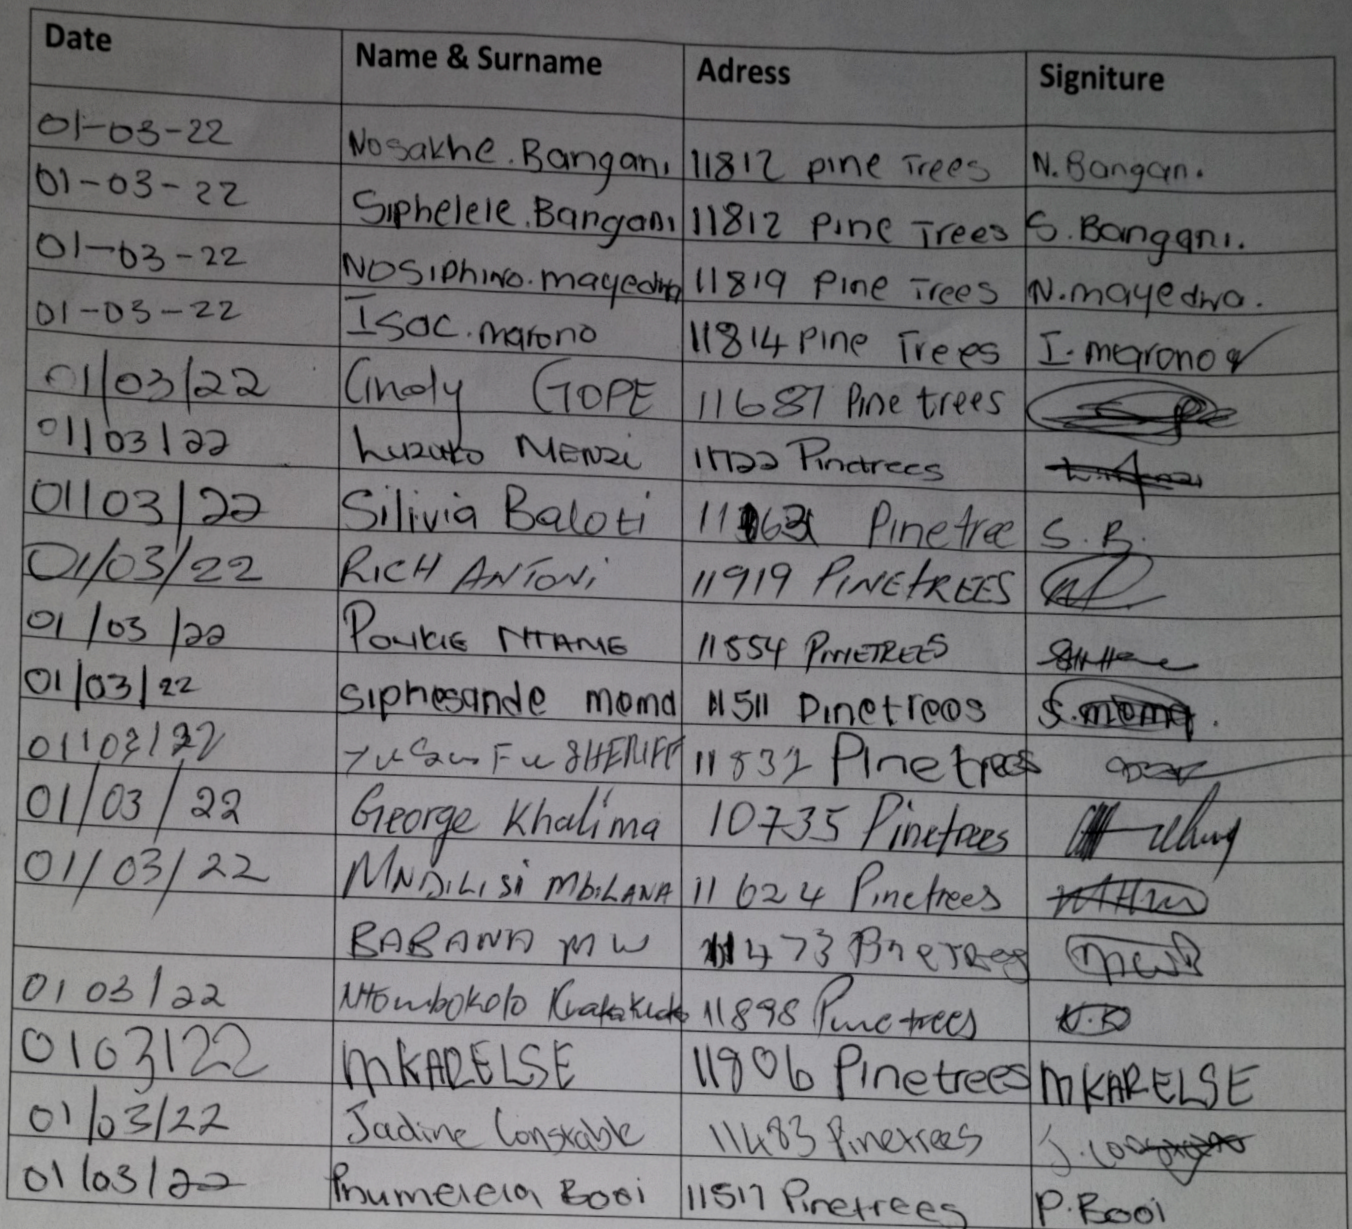 Date Name & Surname Adress Signiture
01-03-22 Nosakhe.Bangani 11812 pine Trees N.Bangani.
01-03-22 Siphelele.Bangani 11812 Pine Trees S.Bangani.
01-03-22 Nosiphiwo.mayedwa 11819 Pine Trees N.mayedwa.
01-03-22 Isac.marono 11814 Pine Trees I.marono
01/03/22 Cindy GOPE 11687 Pine trees
01/03/22 Luzuko MENZi 11722 Pinetrees
01/03/22 Silivia Baloti Pinetree S.B.
01/03/22 RICH ANTONi 11919 PINETREES
01/03/22 NTAME 11554 PINETREES
01/03/22 siphesande mema 11511 Pinetrees S.mema.
01/03/22 SHERIFF 11832 Pinetrees
01/03/22 George Khalima 10735 Pinetrees
01/03/22 MNDiLiSi MbiLANA 11624 Pinetrees
BABANA MW 11473 Pinetrees
01 03/22 Ntombokolo 11898 Pinetrees
01 03/22 MKARELSE 11906 Pinetrees MKARELSE
01/03/22 Jadine Constable 11483 Pinetrees
01/03/22 Phumelela Booi 11517 Pinetrees P.Booi